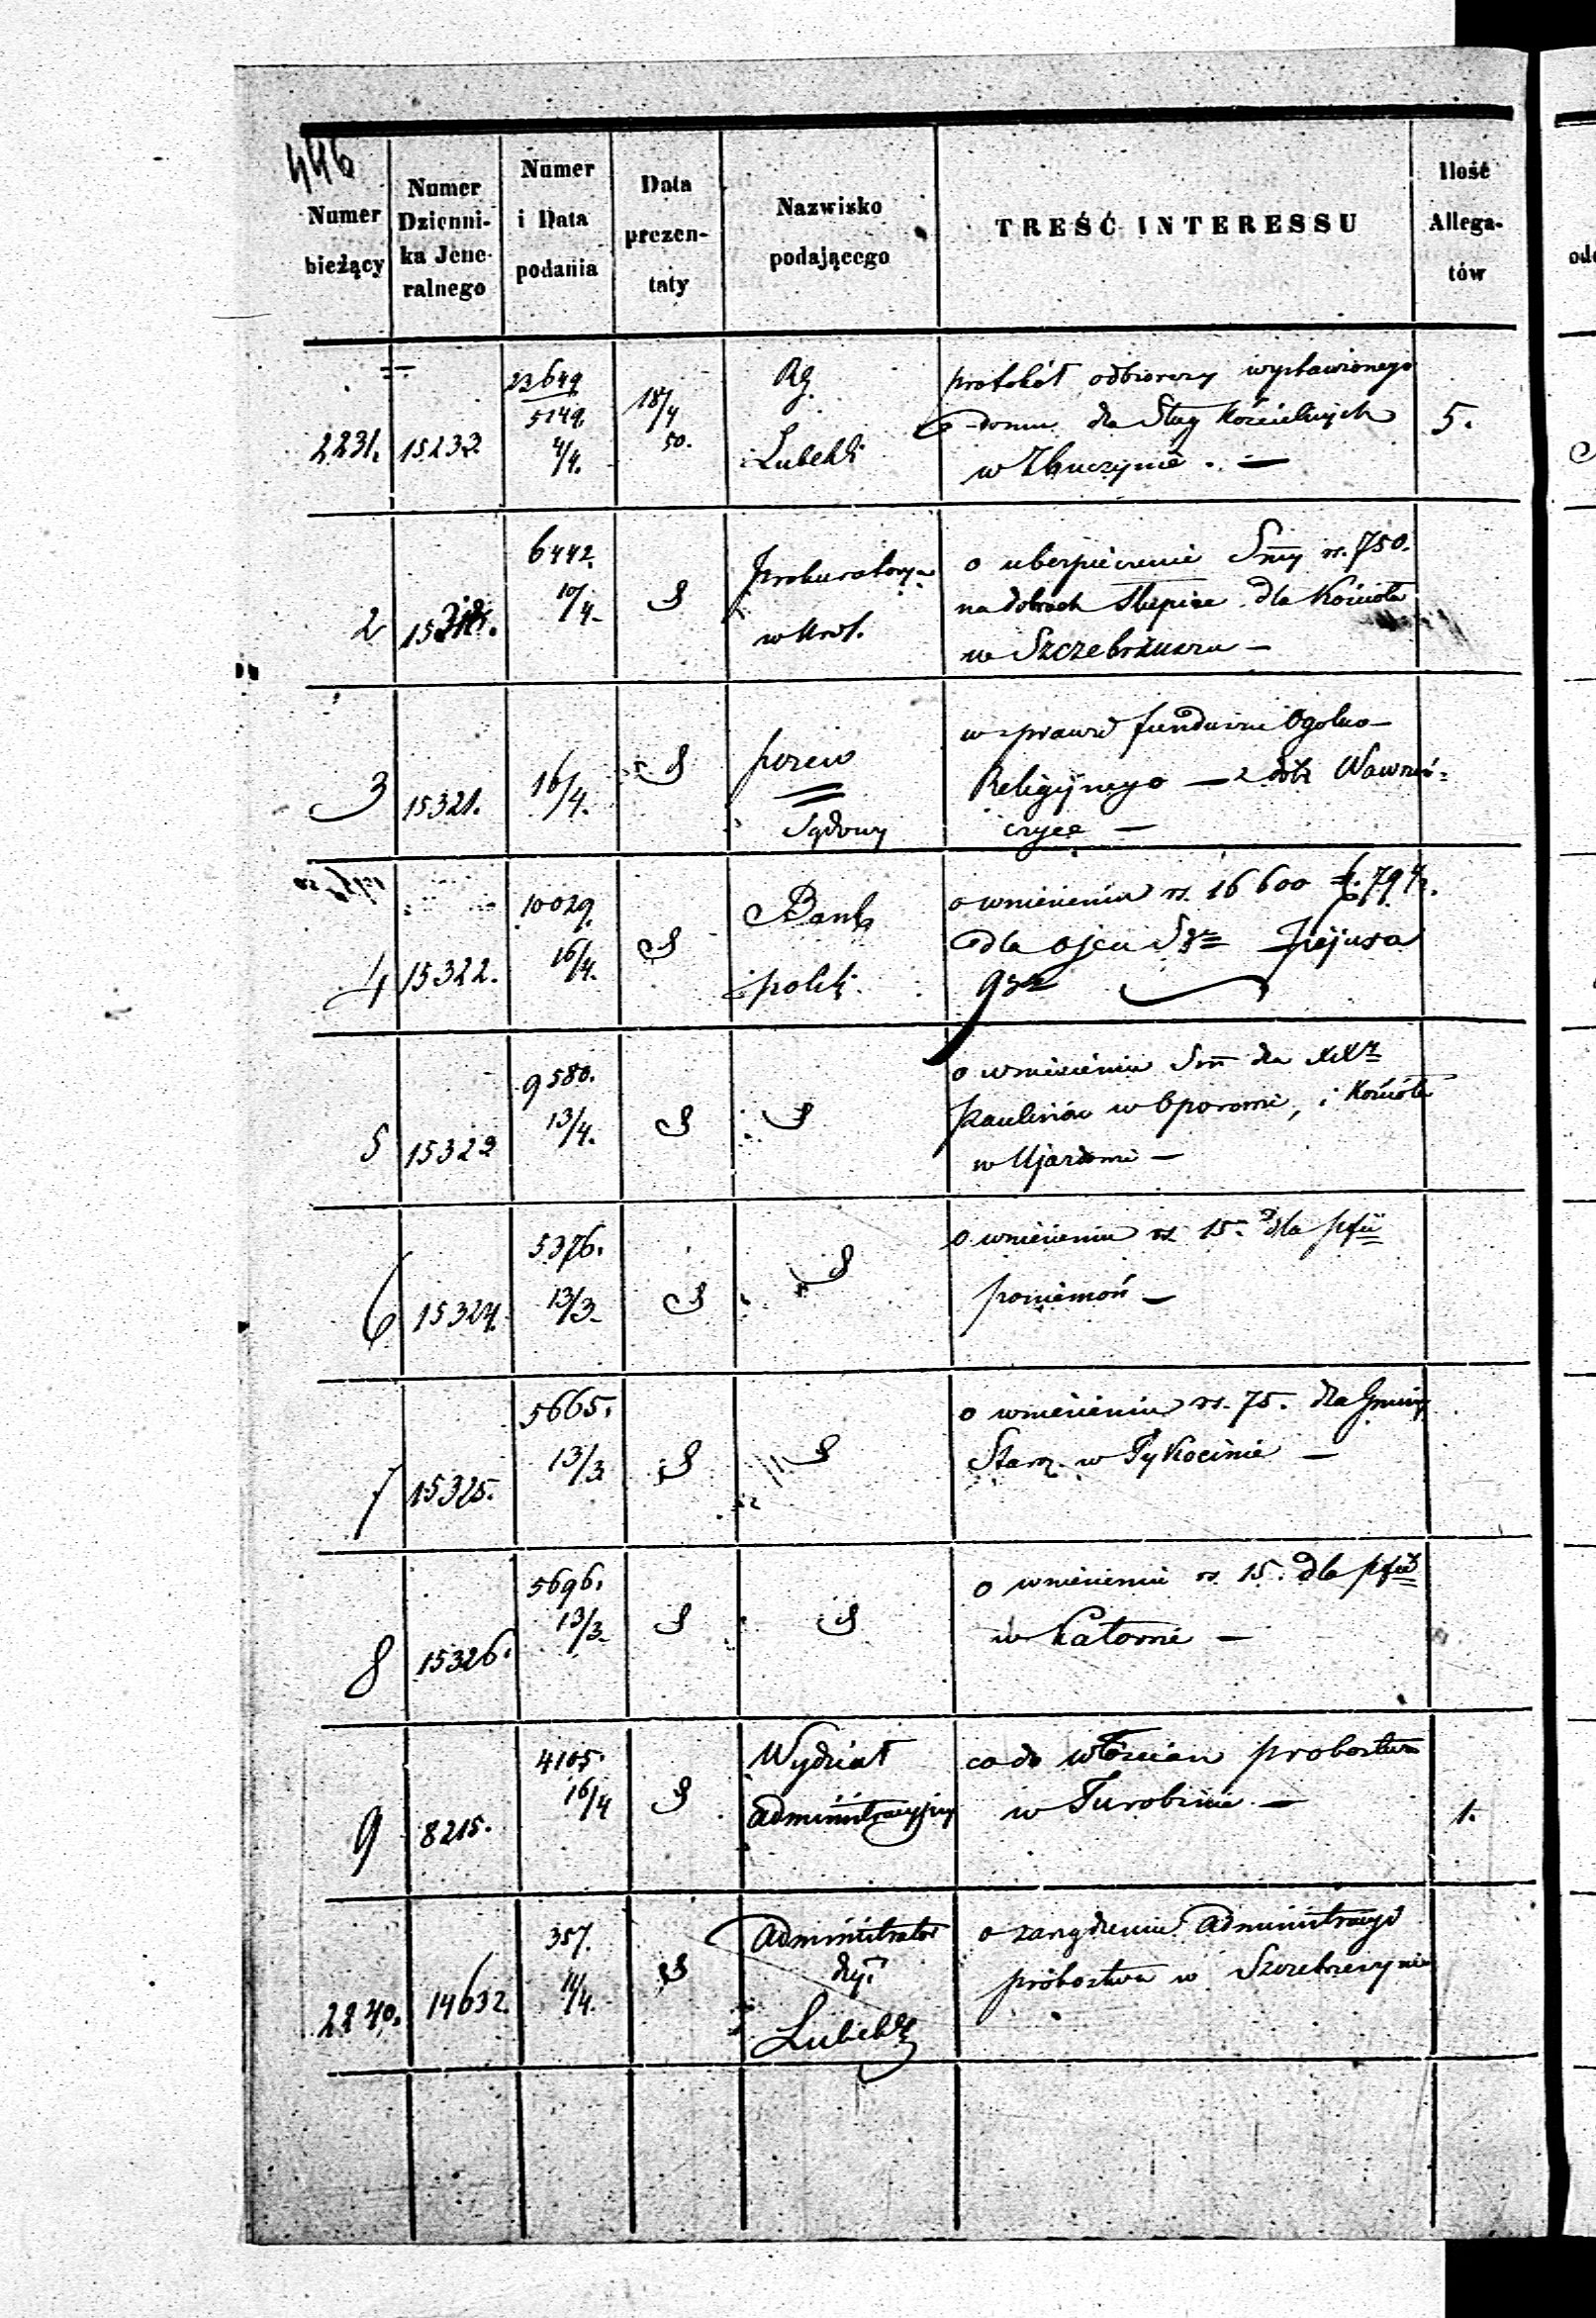 446
Numer bieżący | Numer Dzienni- ka Jene- ralnego | Numer i Data podania | Data prezen- taty | Nazwisko podającego | TREŚĆ INTERESSU | Ilość Allega- tów
2231. | 15233 | 23649 5149. 4/4. | 18/4 50. | Rg. Lubelski | protokół odbiorczy wystawionego
domu dla Sług Kościelnych | 5.
w Zbuczynie. —
2 | 6442. 10/4. | Prokuratorya w Król. | o ubezpieczenie Smy rs. 750.
na dobrach Słupice dla Kościoła
w Szczebrzuszu —
3 | 15321. | 16/4. | pozew Sądowy | w sprawie funduszu Ogolno-
Religijnego — z dóbr Wawrzeń-
czyce —
4 | 15322. | 10029. 16/4. | Bank polski | o wniesieniu rs. 16 600
dla ojca Sgo
5 | 15323 | 9580. 13/4. | o wniesieniu Sm dla XX
Paulinów w Oporowie, i Kościoła
w Ujazdowie —
6 | 15324. | 5376. 13/3. | o wniesieniu rs. 15. dla pfii
Poniemoń —
7 | 15325. | 5665. 13/3. | o wniesieniu rs. 75. dla Gminy
Starz. w Tykocinie —
8 | 15326. | 5696. 13/3. | o wniesieniu rs. 15. dla pfii
w
9 | 8215. | 4105. 16/4 | Wydział Administracyjny | co do włościan probostwa
w Turobinie — | 1.
2240. | 14632. | 357. 11/4. | Administrator dyi Lubelski | o zarządzeniu Administracyi
probostwa w Szczebrzeszynie